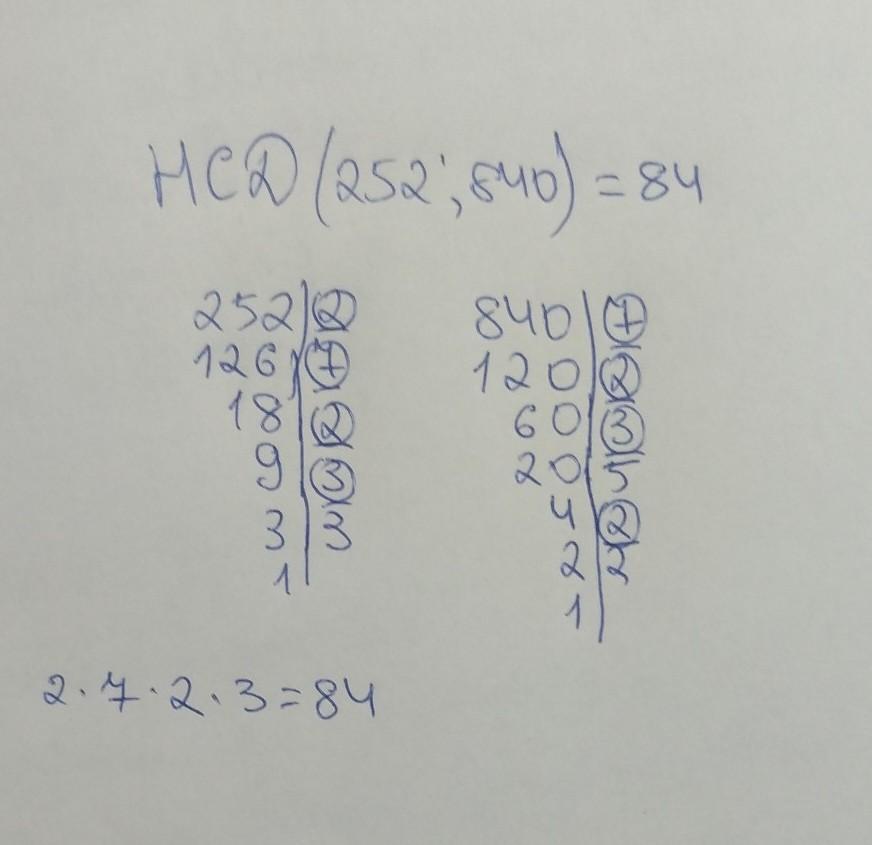 НСД(252; 840) = 84
252 | 2 840 | 7
126 | 7 120 | 2
18 | 2 60 | 3
9 | 3 20 | 5
3 | 3 4 | 2
1 | 2 | 2
1 |
2 · 7 · 2 · 3 = 84